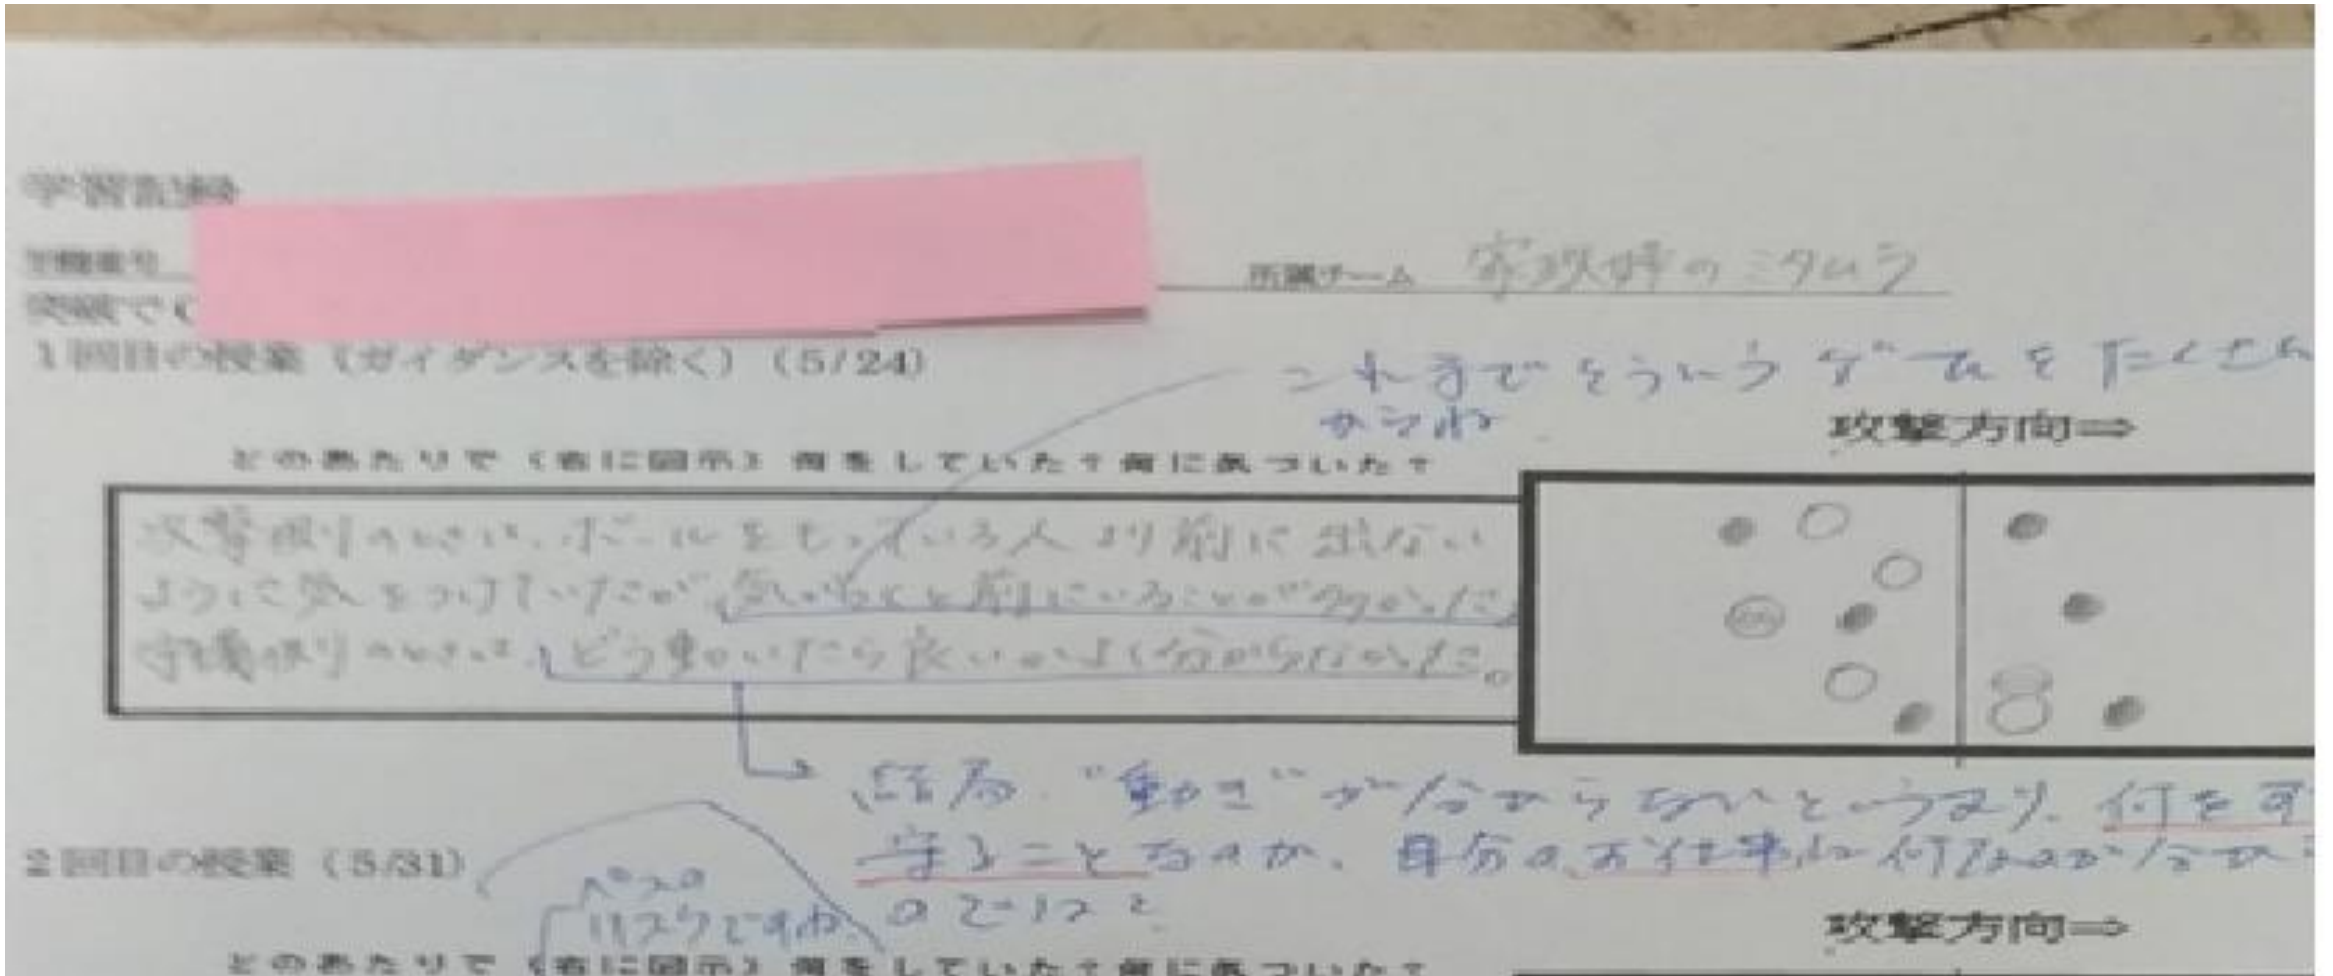 学習記録
学籍番号
所属チーム 家政婦のミタムラ
突破で
1回目の授業（ガイダンスを除く）（5/24）
これまでそういうゲームをたくさん
からね
攻撃方向⇒
どのあたりで（右に図示）何をしていた？何に気づいた？
攻撃側のときは、ボールをもっている人より前に出ない
ように気をつけていたが、気がつくと前にいることが多かった。
守備側のときは、どう動いたら良いかよく分からなかった。
結局、"動き"が分からないというより、何をす
守ることなのか、自分のお仕事は何なのかが分から
のでは？
2回目の授業（5/31）
パスの
リスクですね
攻撃方向⇒
どのあたりで（右に図示）何をしていた？何に気づいた？